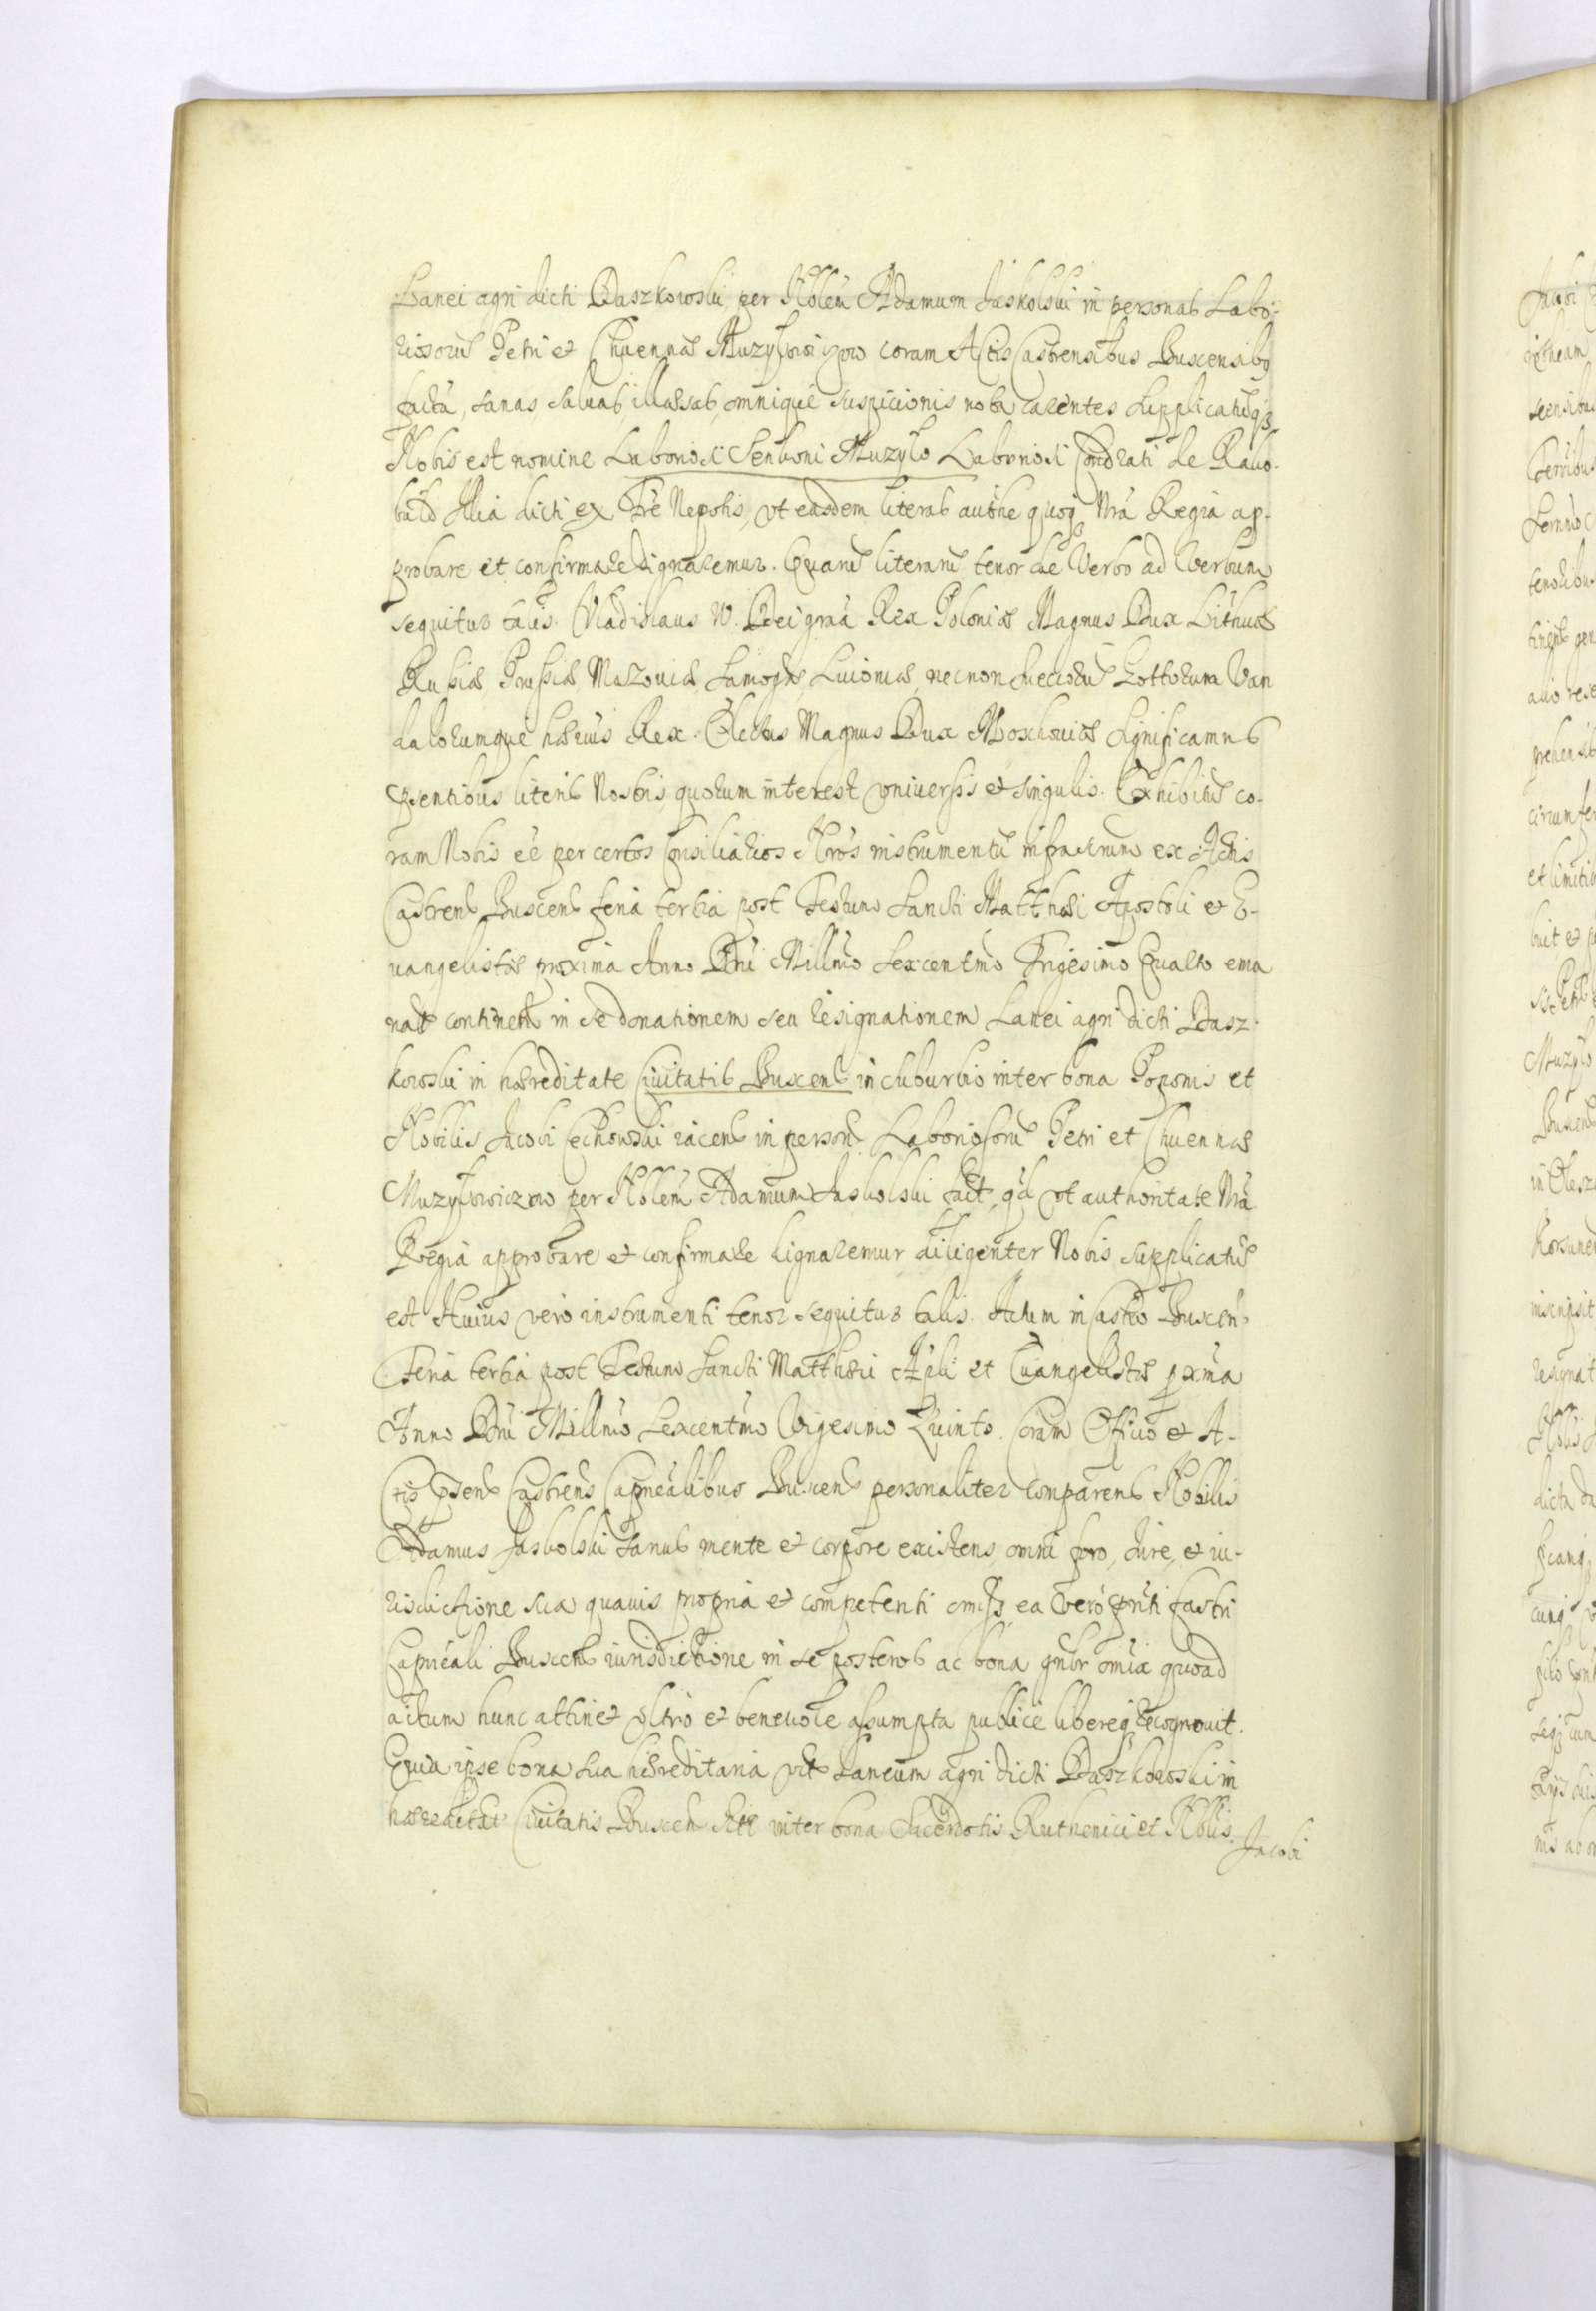 Lanei agri dicti Daszkowski per Nobilem Adamum Jaskolski in personas Labo-
riosorũ Petri et Chuennæ Muzyłowiczow coram Actis Castrensibus Buscensibq
factã, sanas saluas, illæsas, omnique suspicionis nota carentes supplicatũq3
Nobis est nomine Laboriosi Senkoni Muzyło Laboriosi Condrati de
dicti ex, vt easdem literas authe quoq3 Nrã Regia ap-
probare et confirmare dignaremur. Quarũ literarũ tenor de Verbo ad Verbum
sequitur talis. Vladislaus IV. Dei grãa Rex Poloniæ Magnus Dux Lithuæ
Russiæ, Prussiæ, Mazouiæ, Samogæ, Liuoniæ, necnon Suecorũ Gottorum Van
dalorumque hæeuis Rex. Electus Magnus Dux Moschouiæ Significamus
pñtibus literis Nostris, quorum interest vniuersis et singulis. Exhibitũ co-
ram Nobis eẽ per certos Consiliarios Nros instrumentũ infractum ex Actis
Castrens Buscens feria tertia post Festum Sancti Matthæi Apostoli et E-
uangelistæ proxima Anno Dni Millmo Sexcentmo Trigesimo Quarto ema
nat continens in se donationem seu resignationem Lanei agri dicti Dasz-
kowski in hæreditate Ciuitatis Buscens in suburbio inter bona Poponis et
Nobilis Jacobi Cechowski iacens in person Laboriosorũ Petri et Chuennæ
Muzyłowiczow per Nobilem Adamum Jaskolski fact, qd vt authoritate Nrã
Regia approbare et confirmare dignaremur diligenter Nobis supplicatũ
est Huius vero instrumenti tenor sequitur talis. Actum in Castro Buscen-
Feria tertia post Festum Sancti Matthæi Apli et Euangelistæ pxma
Anno Dni Millmo Sexcentmo Vigesimo Quinto. Coram Officio et A-
ctis psens Castrens Capnealibus Buscens personaliter comparens Nobilis
Adamus Jaskolski sanus mente et corpore existens, omni foro, iure, et iu-
risdictione sua quauis propria et competenti omiss, ea vero pñti Castri
Capneali Buscens iurisdictione in se posteros ac bona gnlr omĩa quoad
actum hunc attinet vltro et beneuole assumpta publice libereq3 recognouit.
Quia ipse bona sua hæreditaria vt Laneum agri dicti Daszkowski in
hæreditat Ciuitatis Buscen sit inter bona Sacerdotis Ruthenici et Nobilis
Jacobi